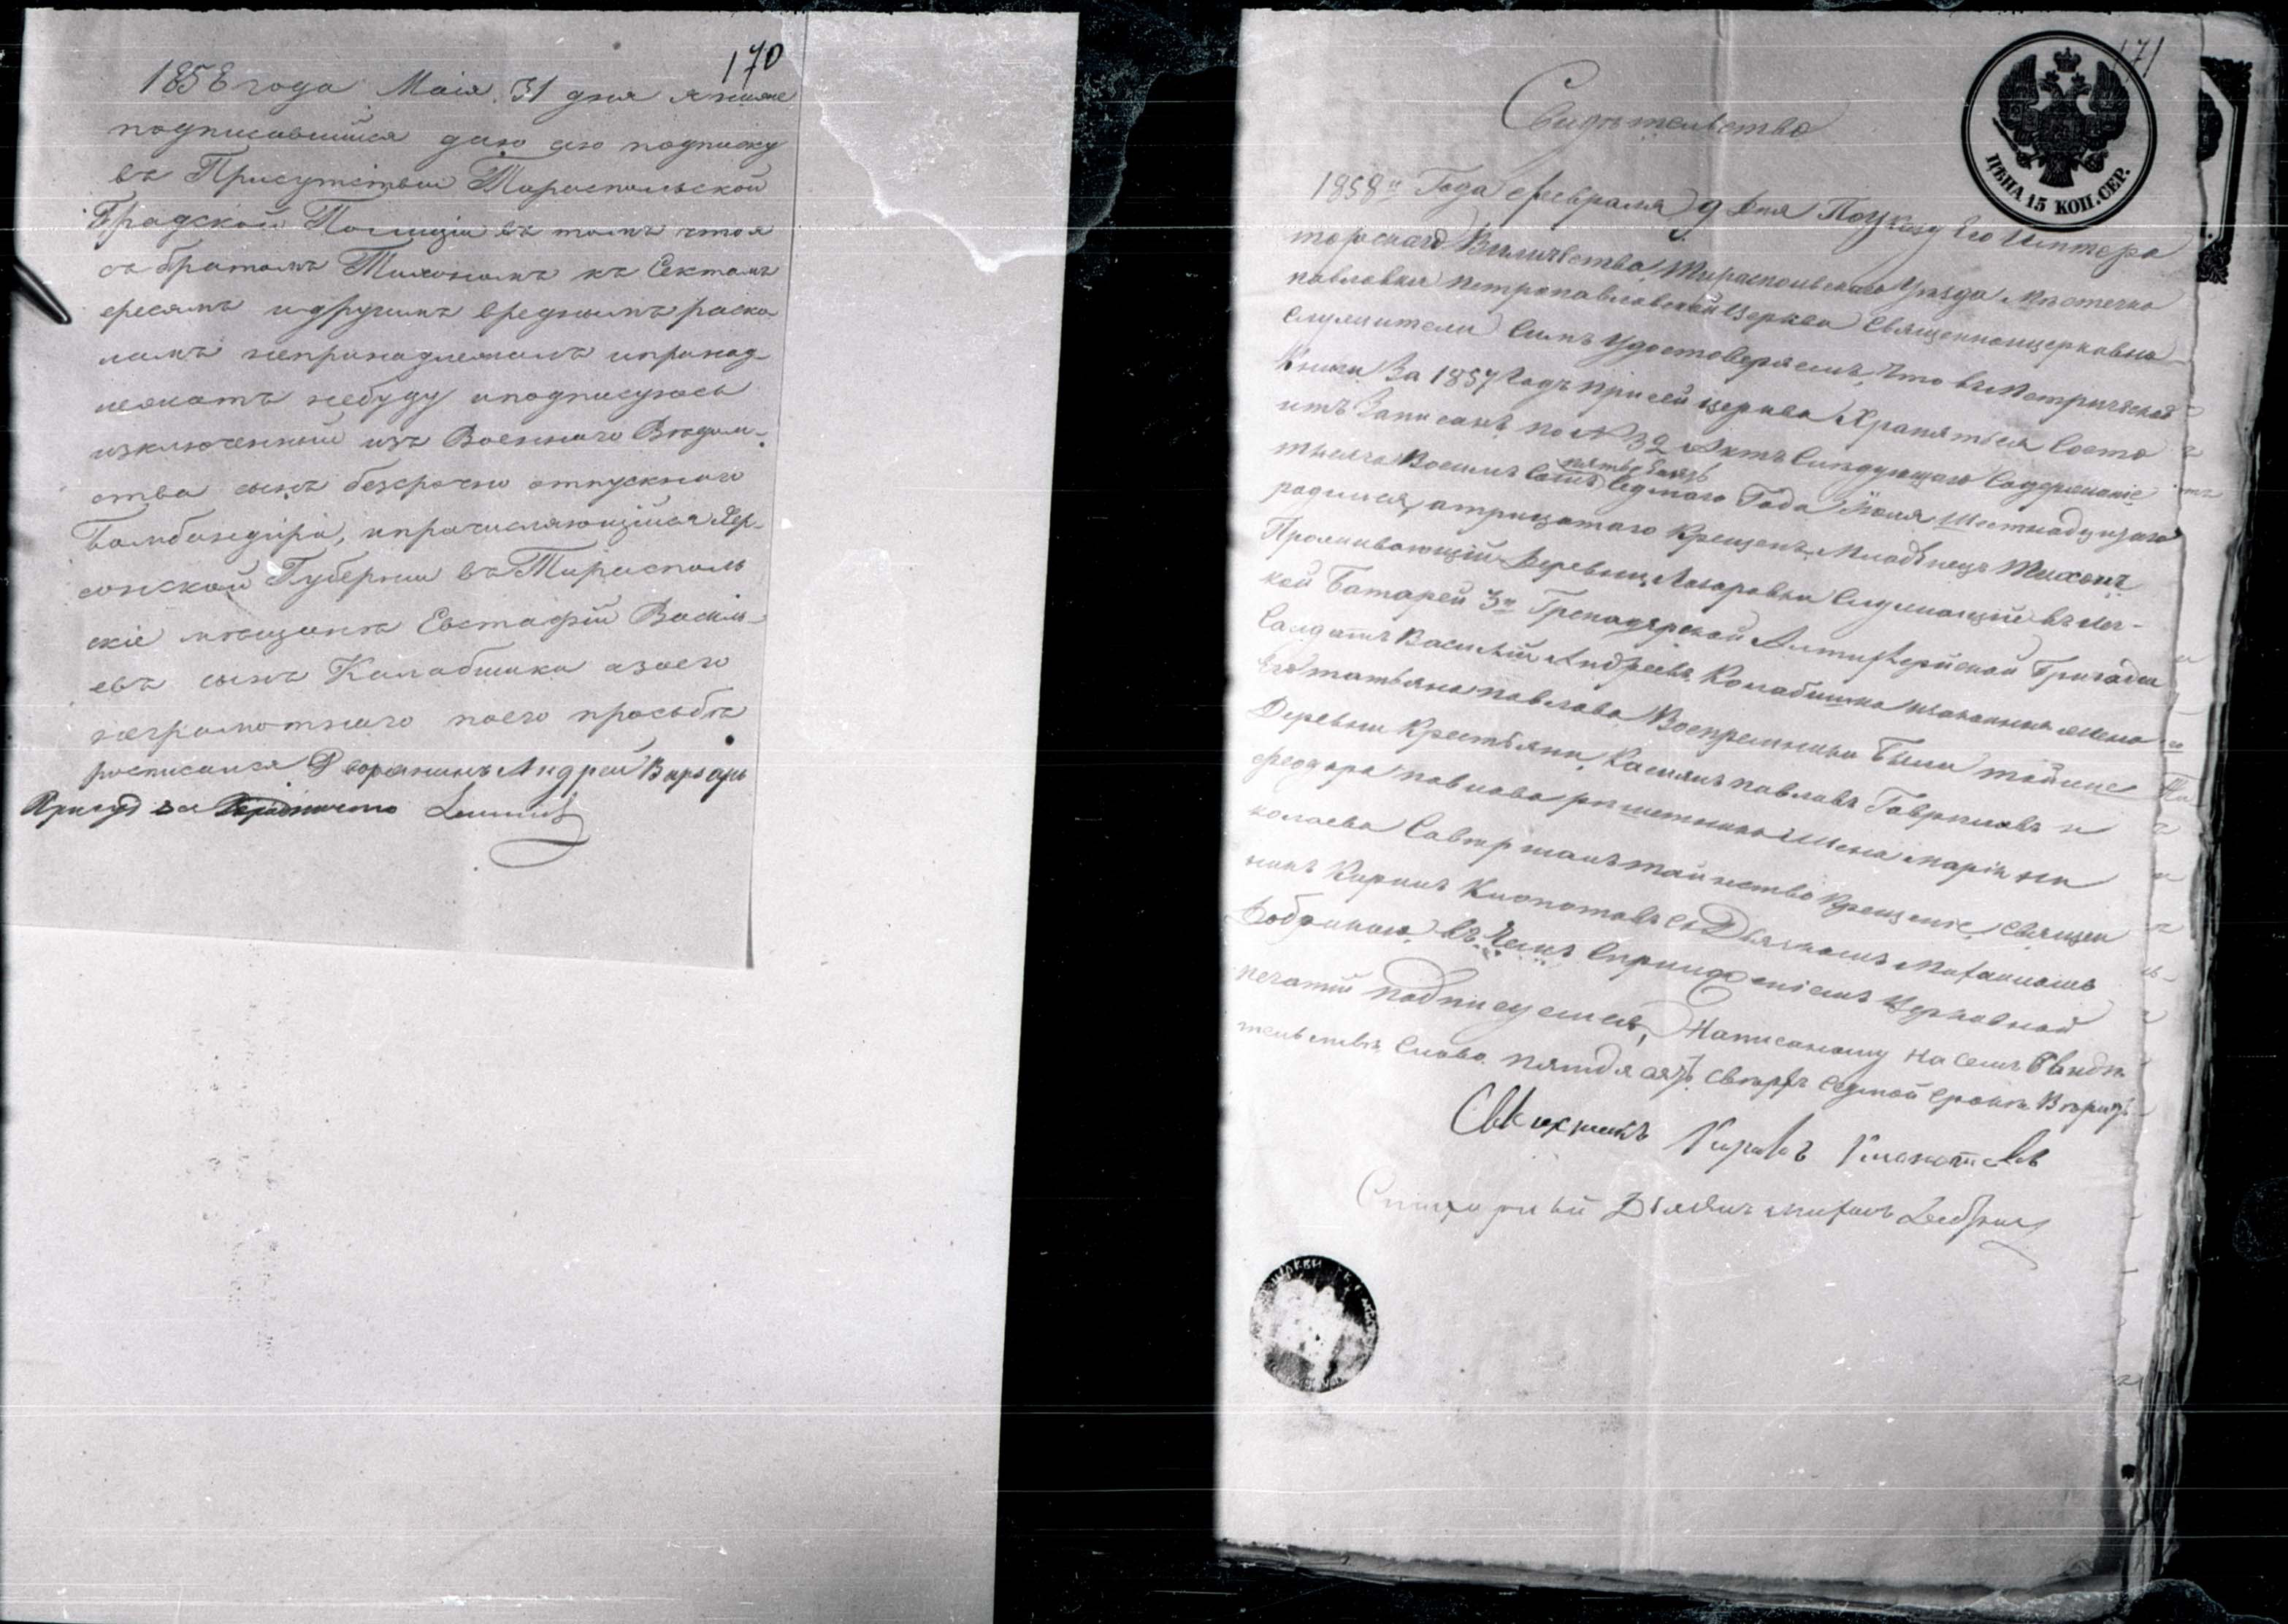 170
1858 года Маія 31 дня я ниже
подписавшийся даю сію подписку
въ Присутствіи Тираспольской
Градской Полиціи въ томъ что я
съ братомъ Тихономъ къ Сектамъ
ересямъ и другимъ вреднымъ раско
ламъ непринадлежалъ и принад-
лежать небуду и подписуюсь
изключенный изъ Военнаго Вѣдом-
ства сынъ безсрочно отпускнаго
Бомбандира, и причисляющійся Хер-
сонской Губерніи въ Тирасполь
скіе мѣщане Евстафій Василь-
евъ сынъ Калабишка а за его
неграмотнаго по его прозьбѣ
росписался Дворянинъ Андрей
171
ЦѢНА 15 КОП. СЕР.
Свидѣтельство
1858го Года февраля 9 дня По Указу Его Императо
торскаго Величества, Тираспольскаго Уезда Местечка
павловки петропавловской Церкви Священноцерковно
служители Симъ Удостоверяемъ, Что въ Метрической
Книги За 1857 Годъ при сей церкви Хранятся Состо
итъ Записанъ по № 32 Актъ Следующаго Содержаніе
пятьдесятъ
тысяча Восемь Сотъ Седмаго Года Іюля Шестнадцатаго
родился, а трицатаго Крещенъ, Младенецъ Тихонъ
Проживающій Деревни, Служащій въ Лег-
кой Батареи 3й Гренадерской Артилерійской Бригады
Салдатъ Василій Андреевъ Колабишка и законная жена
Его татьяна павлова Воспреемники Были тойже
Деревни Крестьяни, Касиянъ павловъ Гавриловъ и
феодора павлова жена Марія ни
колаева Совершалъ таинство Крещеніе, Священ
никъ Кирилъ съ Дьякономъ
въ Чемъ Съ приложеніемъ Церковной
печатіи подписуемся, Написаному на Семъ Свиде
тельстве Слово пятдесятъ сверхъ седмой строки Верить
Священникъ Кирилъ
Стихарный